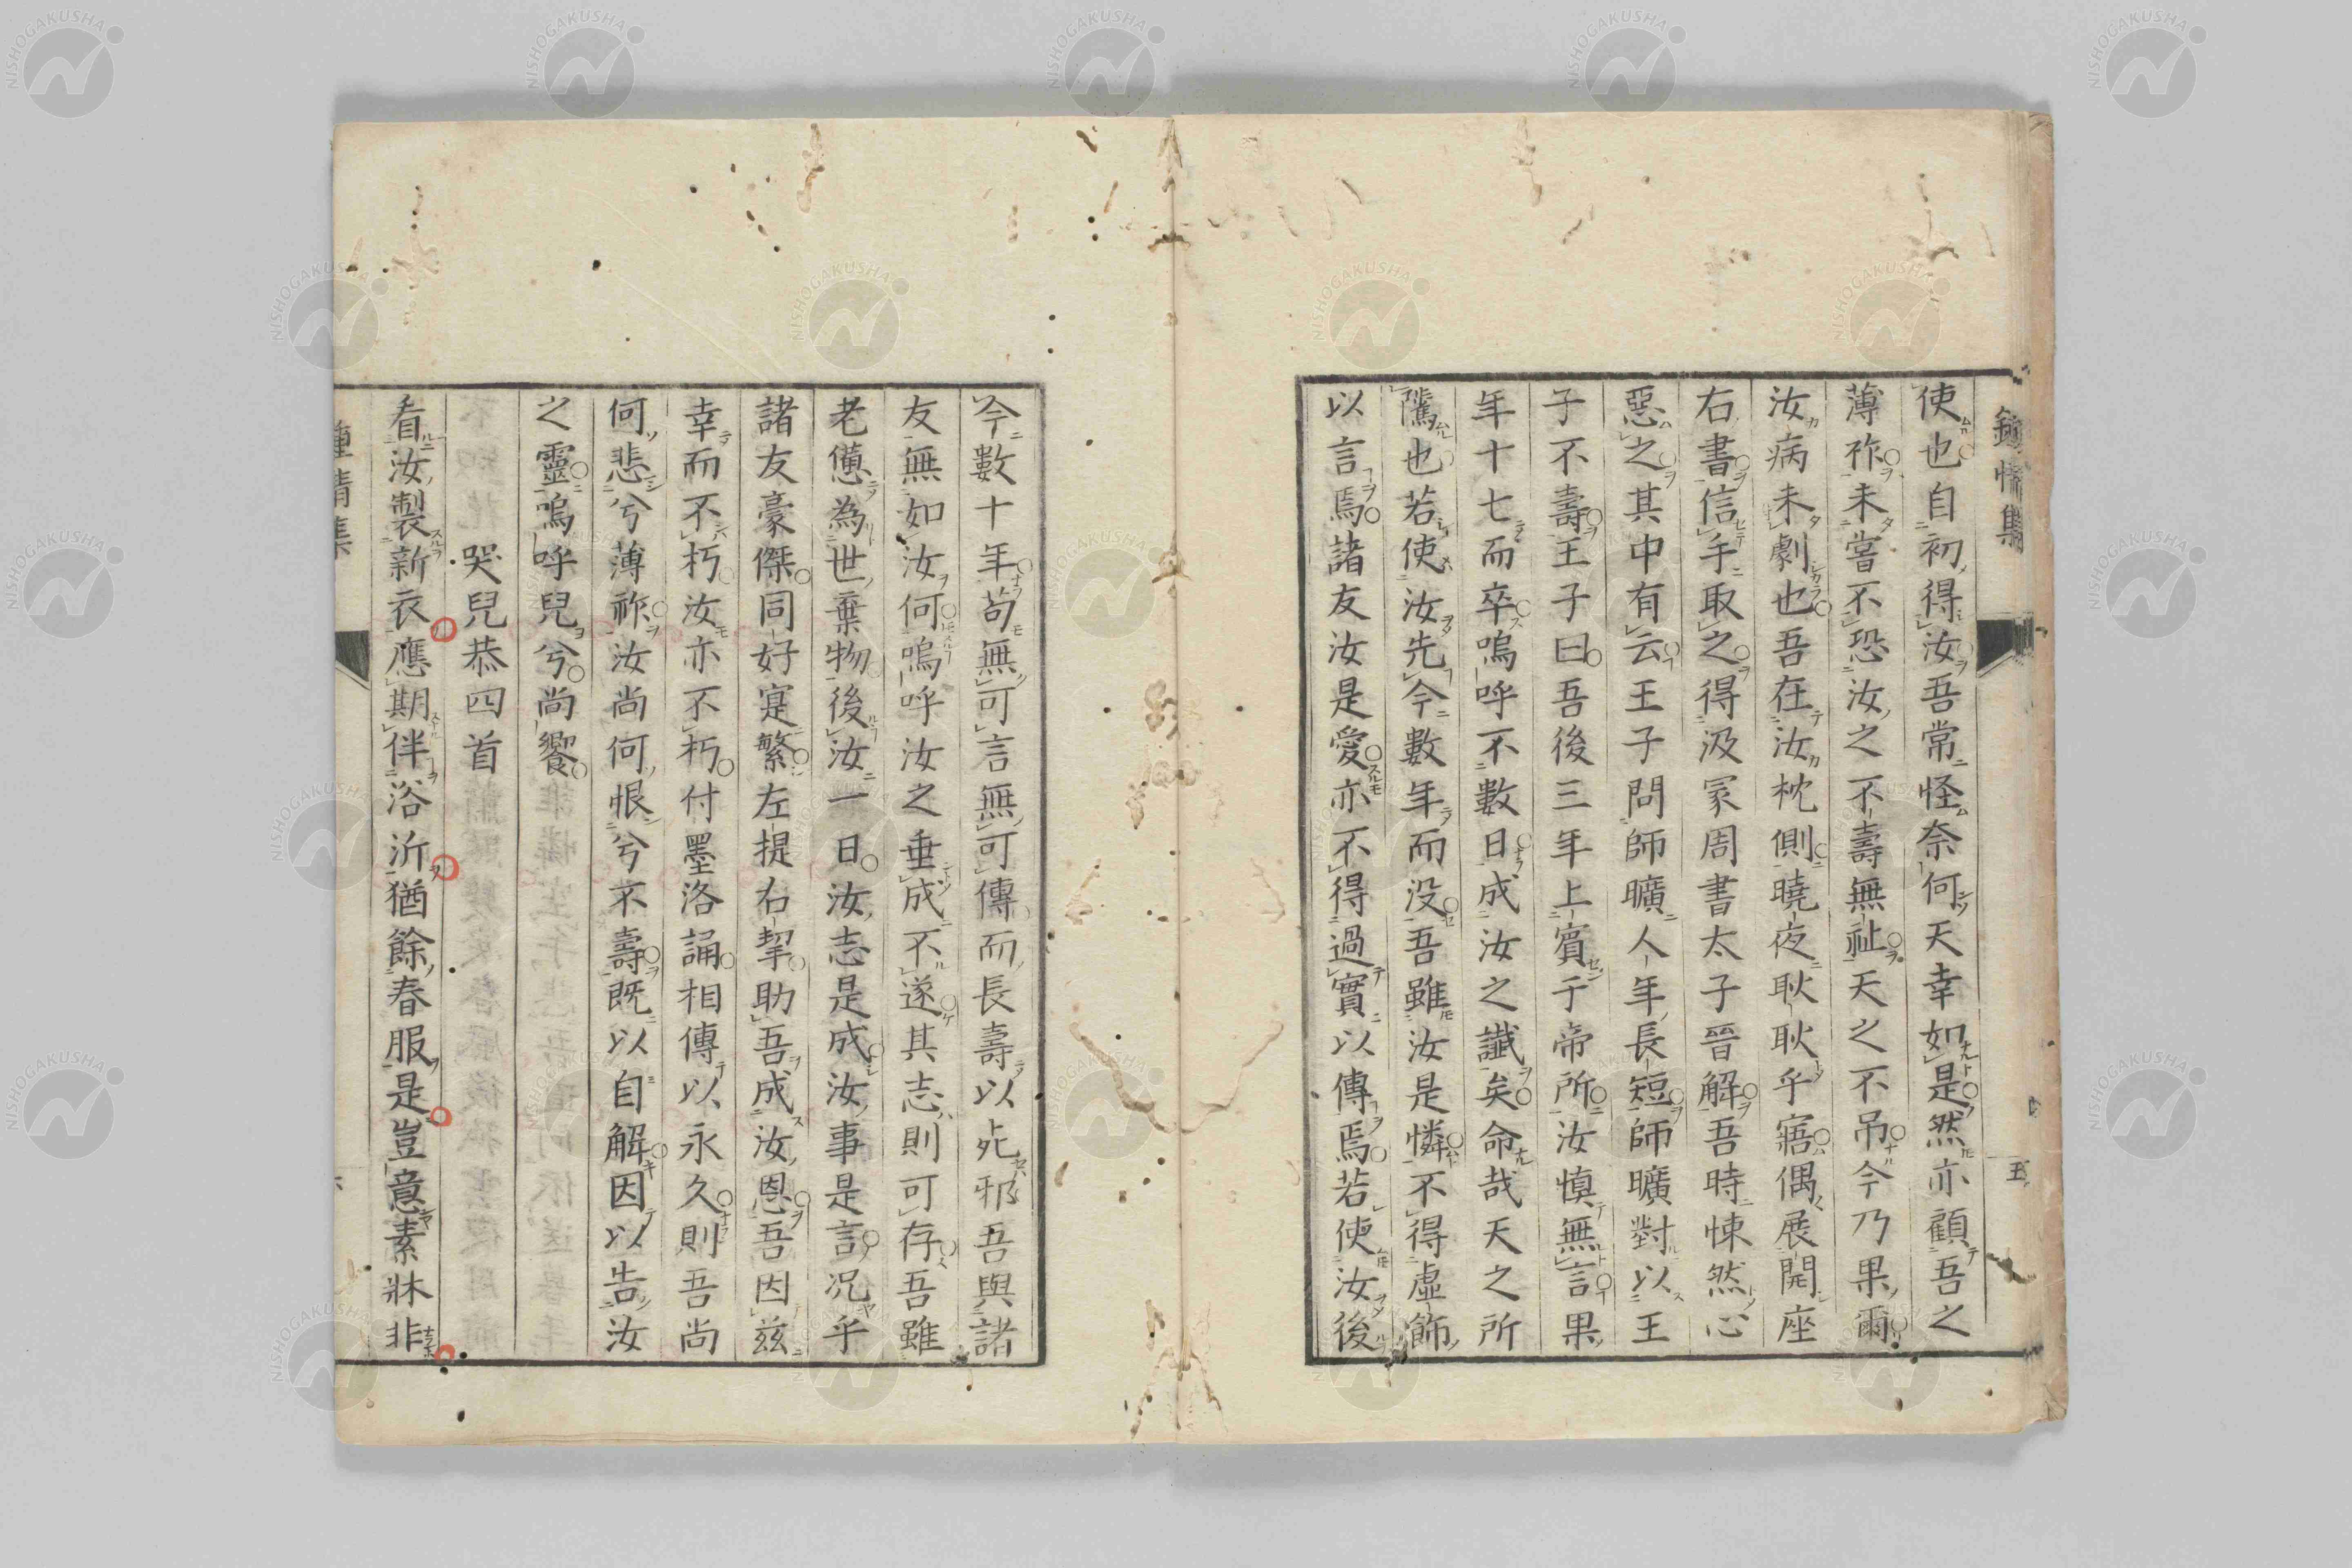 鍾情集
五
使也自初得汝吾常怪奈何天幸如是然亦顧吾之
薄祚未嘗不恐汝之不壽無祉天之不吊今乃果爾
汝病未劇也吾在汝枕側曉夜耿耿乎寤偶展開座
右書信手取之得汲冢周書太子晉解吾時悚然心
惡之其中有云王子問師曠人年長短師曠對以王
子不壽王子曰吾後三年上賓于帝所汝慎無言果
年十七而卒嗚呼不數日成汝之讖矣命哉天之所
隲也若使汝先今數年而没吾雖汝是憐不得虛飾
以言焉諸友汝是愛亦不得過實以傳焉若使汝後
今數十年苟無可言無可傳而長壽以死邪吾與諸
友無如汝何嗚呼汝之垂成不遂其志則可存吾雖
老憊為世棄物後汝一日汝志是成汝事是言況乎
諸友豪傑同好寔繁左提右挈助吾成汝恩吾因茲
幸而不朽汝亦不朽付墨洛誦相傳以永久則吾尚
何悲兮薄祚汝尚何恨兮不壽既以自解因以告汝
之靈嗚呼兒兮尚饗
哭兒恭四首
看汝製新衣應期伴浴沂猶餘春服是豈意素牀非
鍾情集